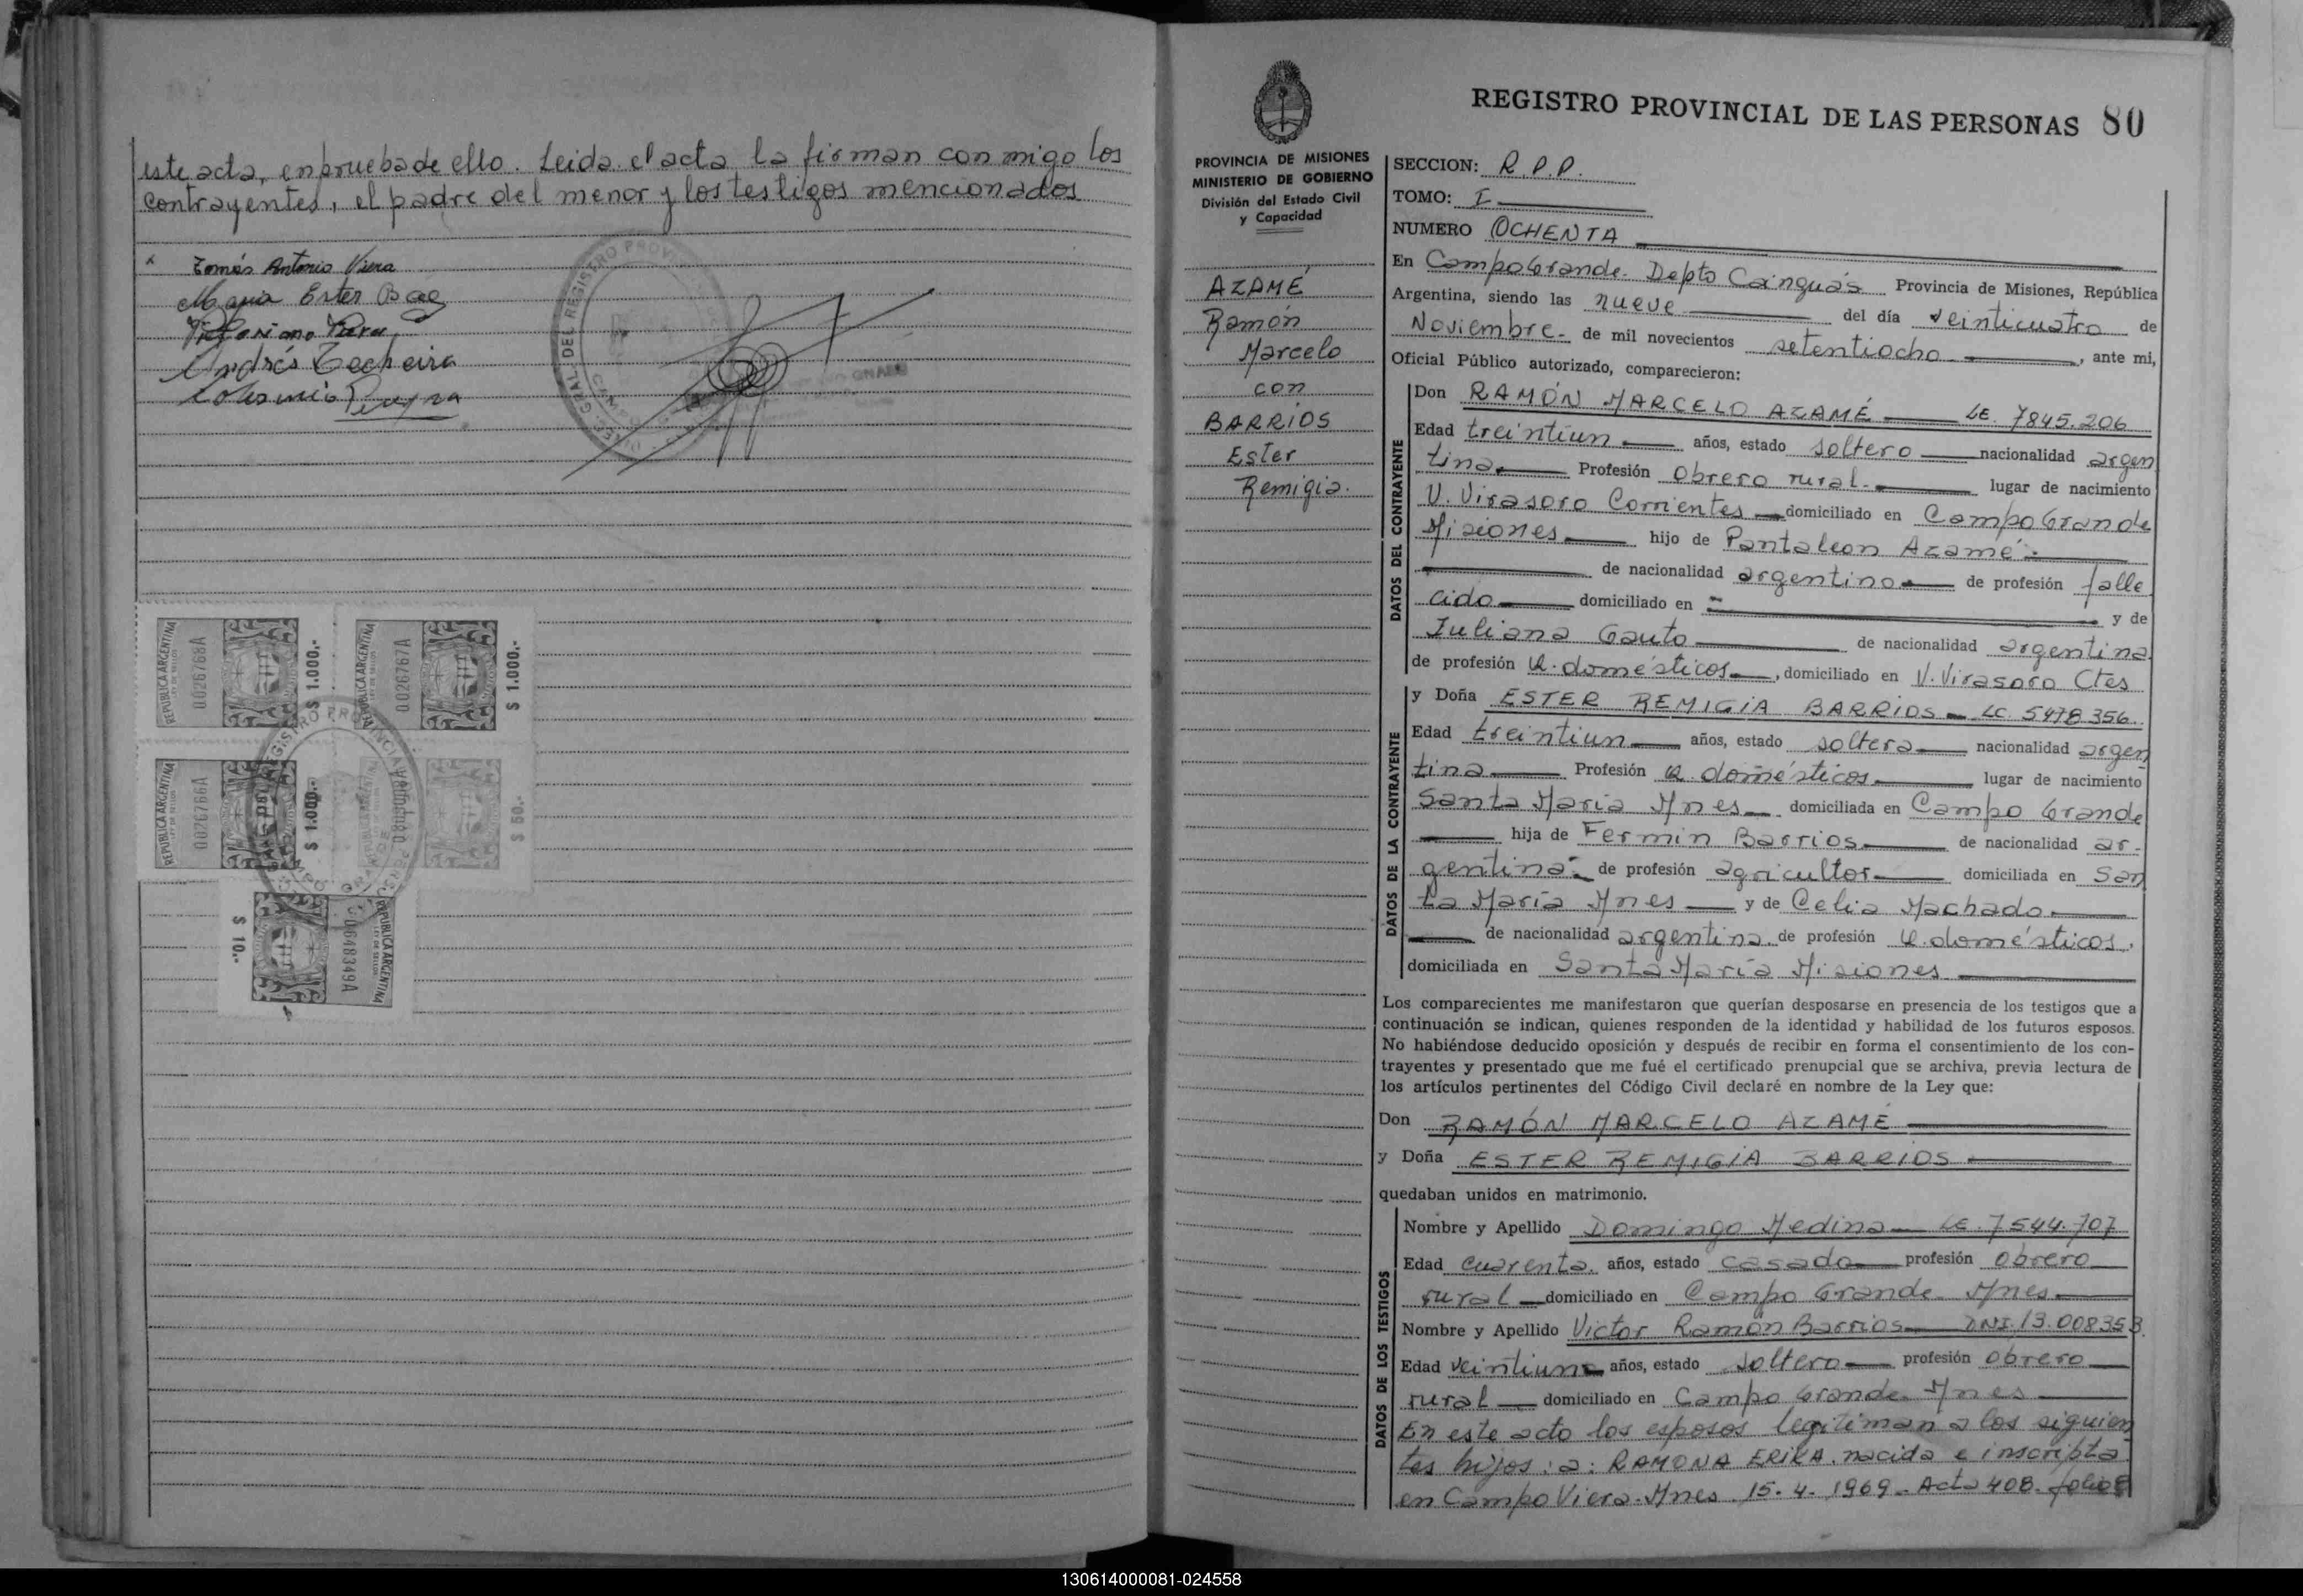 este acta, en prueba de ello. Leida el acta la firman conmigo los
contrayentes, el padre del menor y los testigos mencionados
x Tomás Antonio Viera
Maria Ester
Andrés Techeira
REPUBLICA ARGENTINA
LEY DE SELLOS
0026768A
$ 1.000.-
REPUBLICA ARGENTINA
0026767A
$ 1.000.-
REPUBLICA ARGENTINA
LEY DE SELLOS
0026766A
$ 1.000.-
$ 50.-
$ 10.-
0648349A
REPUBLICA ARGENTINA
LEY DE SELLOS
REGISTRO PROVINCIAL DE LAS PERSONAS 80
PROVINCIA DE MISIONES
MINISTERIO DE GOBIERNO
División del Estado Civil
y Capacidad
AZAMÉ
Ramón
Marcelo
con
BARRIOS
Ester
Remigia.
SECCION: R.P.P.
TOMO: I
NUMERO OCHENTA
En Campo Grande - Depto Cainguás Provincia de Misiones, República
Argentina, siendo las nueve del día veinticuatro de
Noviembre - de mil novecientos setentiocho, ante mi,
Oficial Público autorizado, comparecieron:
DATOS DEL CONTRAYENTE
Don RAMÓN MARCELO AZAMÉ LE. 7845.206
Edad treintiun años, estado soltero nacionalidad argen
tina Profesión obrero rural - lugar de nacimiento
V. Virasoro Corrientes domiciliado en Campo Grande
Misiones hijo de Pantaleon Azamé -
de nacionalidad argentino de profesión falle
cido domiciliado en - y de
Juliana Gauto de nacionalidad argentina
de profesión Q. domésticos, domiciliado en V. Virasoro Ctes
DATOS DE LA CONTRAYENTE
y Doña ESTER REMIGIA BARRIOS - LC 5478.356.
Edad treintiun años, estado soltera nacionalidad argen
tina Profesión Q. domésticos lugar de nacimiento
Santa Maria Mnes domiciliada en Campo Grande
hija de Fermin Barrios de nacionalidad ar-
gentina - de profesión agricultor domiciliada en San
ta María Mnes y de Celia Machado
de nacionalidad argentina de profesión Q. domésticos,
domiciliada en Santa María Misiones
Los comparecientes me manifestaron que querían desposarse en presencia de los testigos que a
continuación se indican, quienes responden de la identidad y habilidad de los futuros esposos.
No habiéndose deducido oposición y después de recibir en forma el consentimiento de los con-
trayentes y presentado que me fué el certificado prenupcial que se archiva, previa lectura de
los artículos pertinentes del Código Civil declaré en nombre de la Ley que:
Don RAMÓN MARCELO AZAMÉ
y Doña ESTER REMIGIA BARRIOS
quedaban unidos en matrimonio.
DATOS DE LOS TESTIGOS
Nombre y Apellido Domingo Medina - LE. 7544.707
Edad cuarenta años, estado casado profesión obrero
rural domiciliado en Campo Grande - Mnes
Nombre y Apellido Victor Ramón Barrios DNI. 13.008353.
Edad veintiuno años, estado soltero profesión obrero
rural domiciliado en Campo Grande - Mnes
En este acto los esposos legitiman a los siguien
tes hijos: a: RAMONA ERIKA. nacida e inscripta
en Campo Viera - Mnes 15-4-1969 - Acta 408 - folio
130614000081-024558